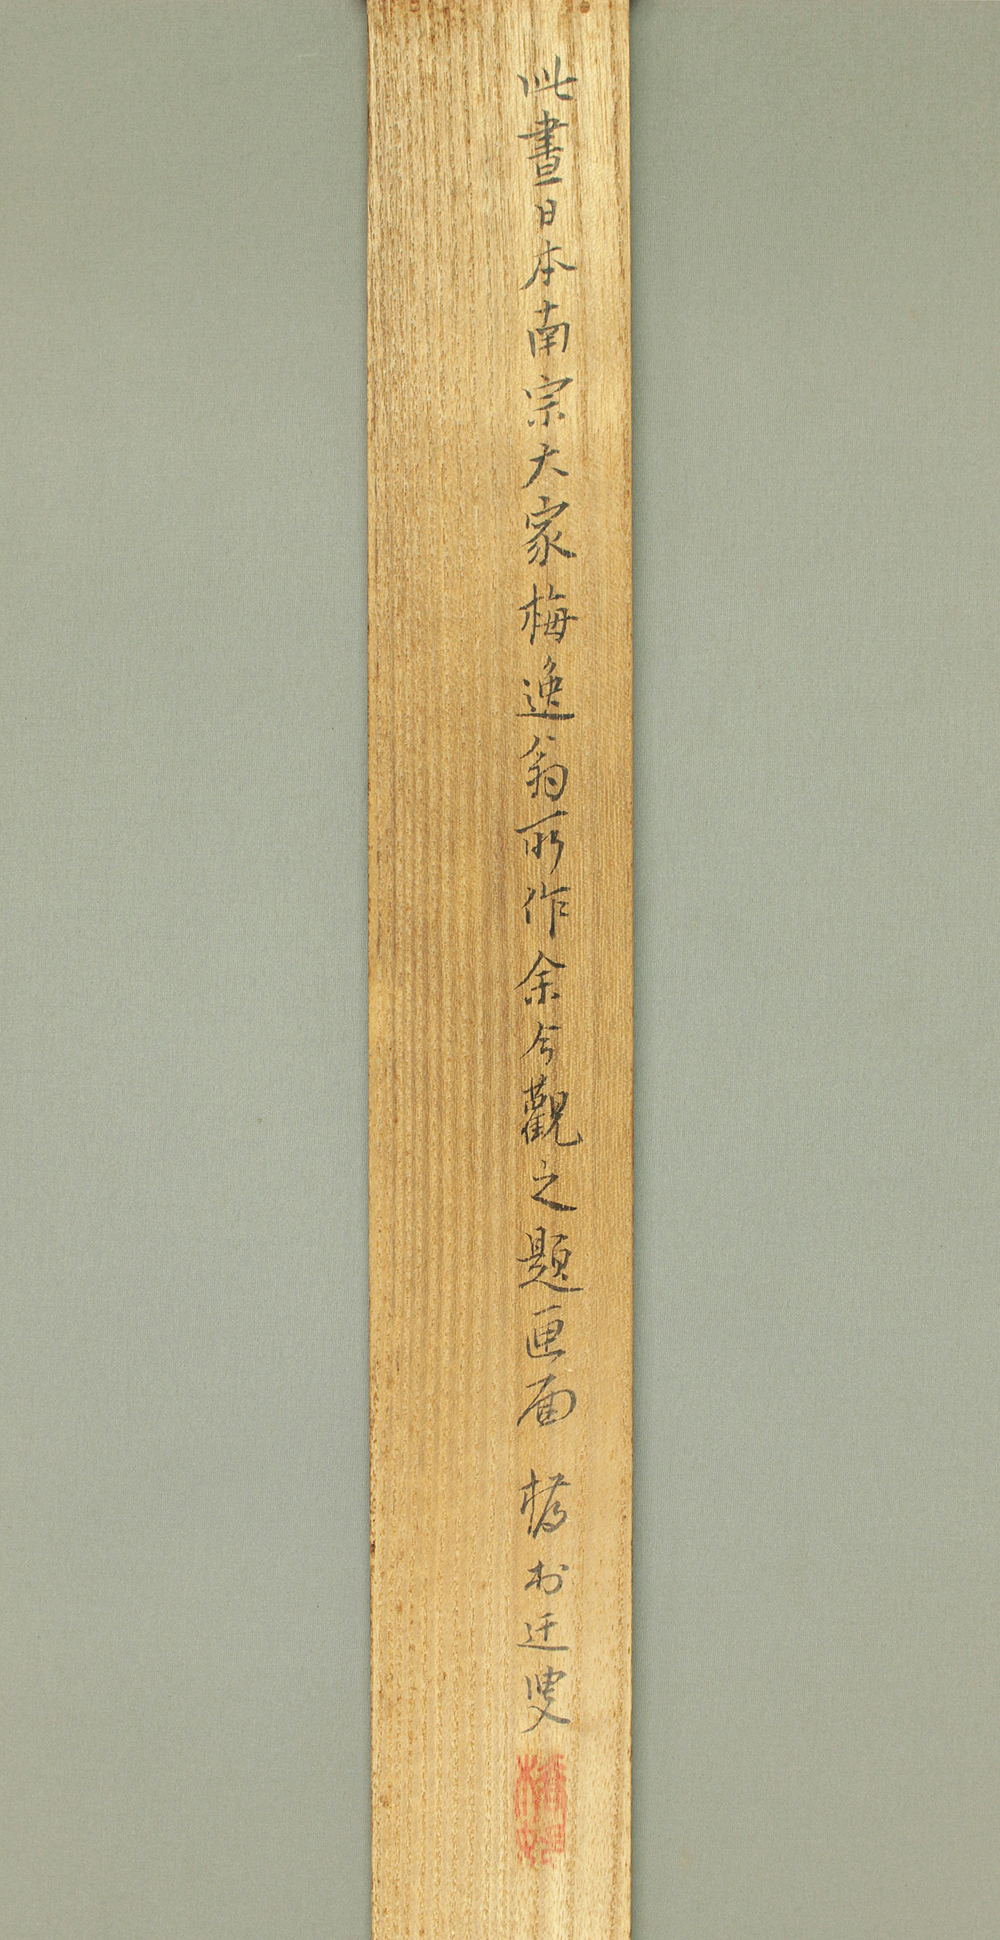 此畫日本南宗大家梅逸翁所作余今觀之題匣面 橋村迂叟